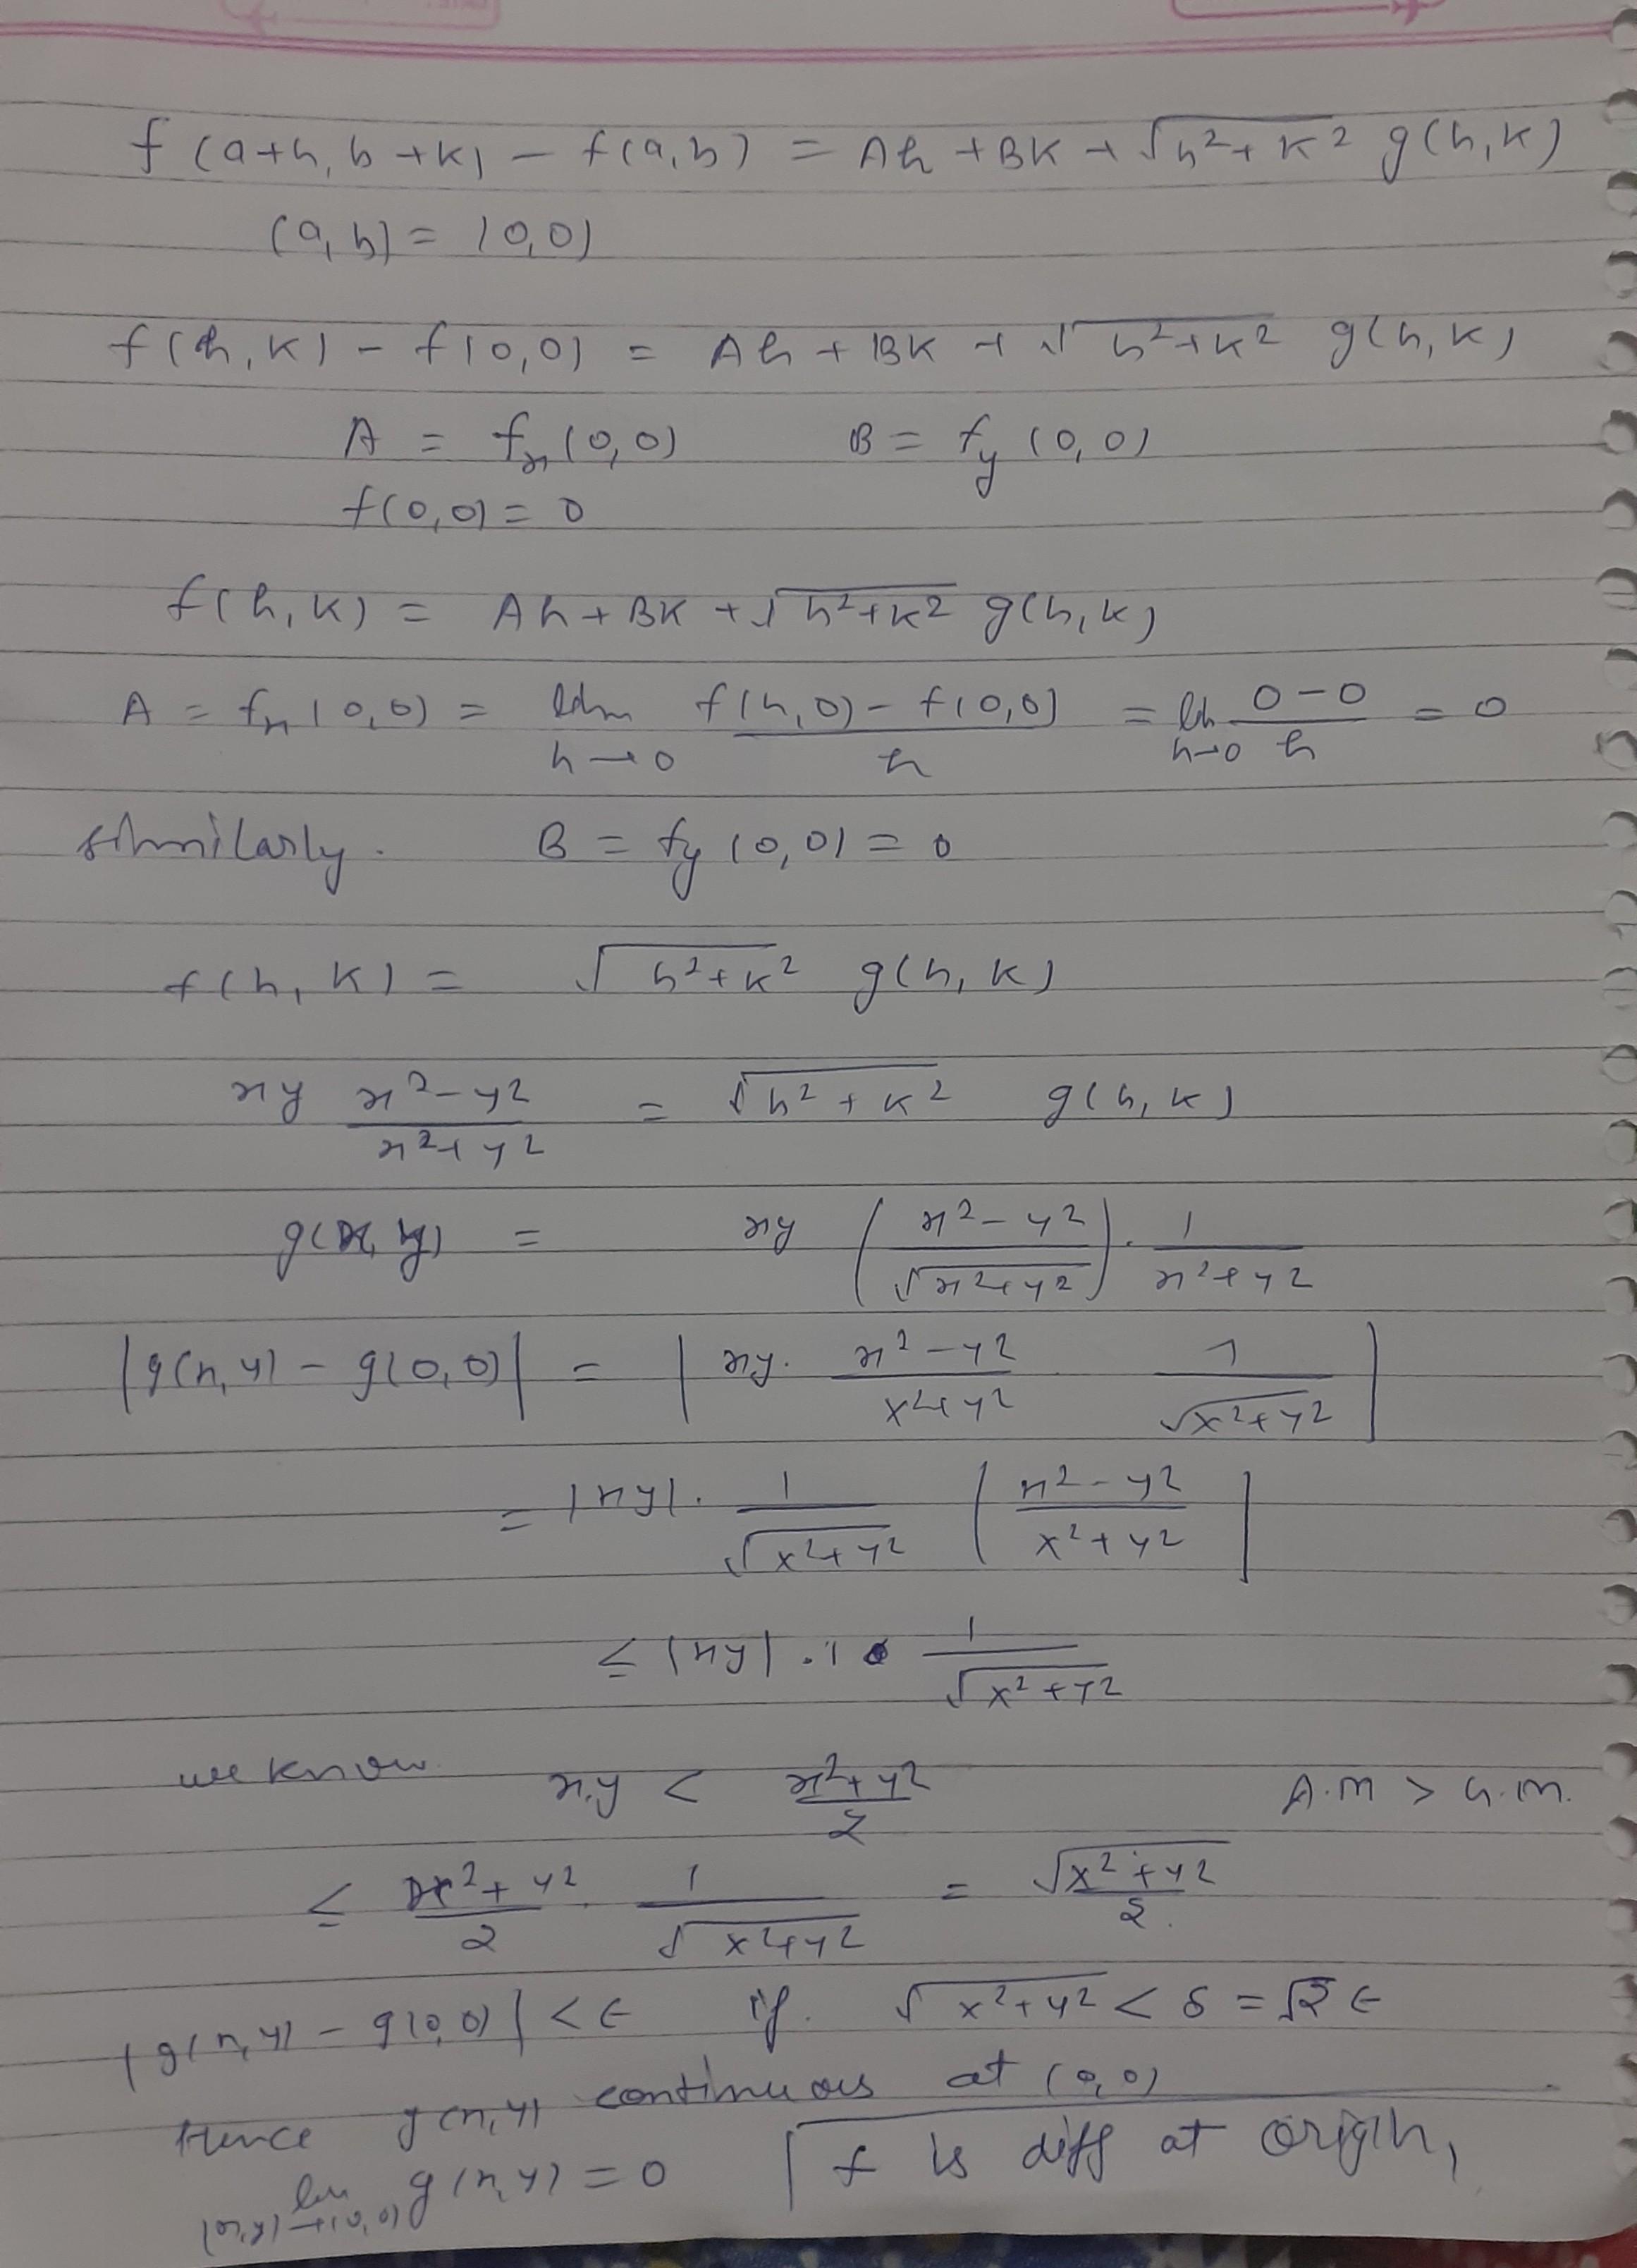 f(a+h, b+k) - f(a,b) = Ah + BK + √h²+k² g(h,k)
(a,b) = (0,0)
f(h,k) - f(0,0) = Ah + BK + √h²+k² g(h,k)
A = fx(0,0) B = fy(0,0)
f(0,0) = 0
f(h,k) = Ah + BK + √h²+k² g(h,k)
A = fx(0,0) = lim h→0 f(h,0) - f(0,0) / h = lim h→0 0-0 / h = 0
similarly. B = fy(0,0) = 0
f(h,k) = √h²+k² g(h,k)
xy x²-y² / x²+y² = √h²+k² g(h,k)
g(x,y) = xy (x²-y² / √x²+y²) . 1 / x²+y²
|g(x,y) - g(0,0)| = |xy. x²-y² / x²+y² 1 / √x²+y²|
= |xy|. 1 / √x²+y² |x²-y² / x²+y²|
≤ |xy| . 1 . 1 / √x²+y²
we know x.y < x²+y² / 2 A.M > G.M.
≤ x²+y² / 2 . 1 / √x²+y² = √x²+y² / 2.
|g(x,y) - g(0,0)| < ϵ if. √x²+y² < δ = √2 ϵ
Hence g(x,y) continuous at (0,0)
lim (x,y)→(0,0) g(x,y) = 0 f is diff at origin,